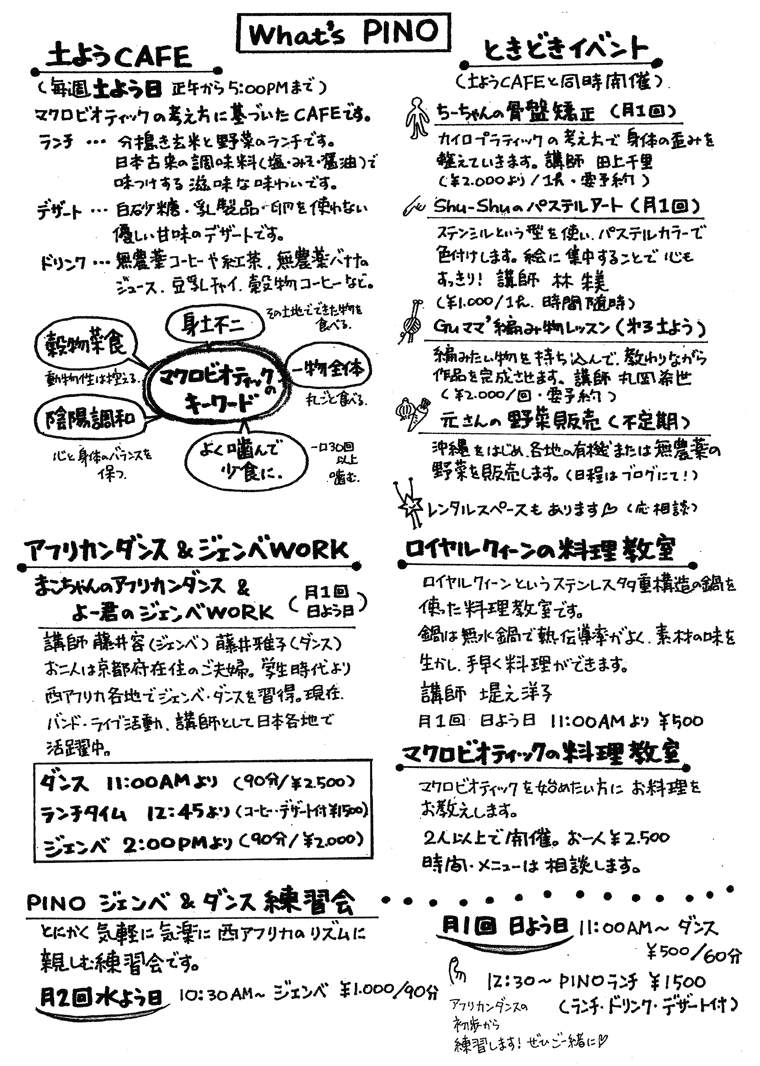 What's PINO
土ようCAFE
(毎週土よう日 正午から5:00PMまで)
マクロビオティックの考え方に基づいたCAFEです。
ランチ … 分搗き玄米と野菜のランチです。
日本古来の調味料(塩・みそ・醤油)で
味つけする滋味な味わいです。
デザート … 白砂糖・乳製品・卵を使わない
優しい甘味のデザートです。
ドリンク … 無農薬コーヒーや紅茶、無農薬バナナの
ジュース、豆乳チャイ、穀物コーヒーなど。
身土不二
その土地でできた物を
食べる。
穀物菜食
動物性は控える。
マクロビオティックの
キーワード
一物全体
丸ごと食べる。
陰陽調和
心と身体のバランスを
保つ。
よく噛んで
少食に。
一口30回
以上
噛む。
ときどきイベント
(土ようCAFEと同時開催)
ちーちゃんの骨盤矯正(月1回)
カイロプラティックの考え方で身体の歪みを
整えていきます。講師 田上千里
(¥2.000より/1人・要予約)
Shu-Shuのパステルアート(月1回)
ステンシルという型を使い、パステルカラーで
色付けします。絵に集中することで心も
すっきり! 講師 林 朱美
(¥1.000/1人、時間随時)
Guママ'編み物レッスン(第3土よう)
編みたい物を持ち込んで、教わりながら
作品を完成させます。講師 丸岡希世
(¥2.000/回・要予約)
元さんの野菜販売(不定期)
沖縄をはじめ、各地の有機または無農薬の
野菜を販売します。(日程はブログにて!)
レンタルスペースもあります(応相談)
アフリカンダンス&ジェンベWORK
まこちゃんのアフリカンダンス &
よー君のジェンベWORK
(月1回
日よう日)
講師 藤井容(ジェンベ) 藤井雅子(ダンス)
お二人は京都府在住のご夫婦。学生時代より
西アフリカ各地でジェンベ・ダンスを習得。現在、
バンド・ライブ活動、講師として日本各地で
活躍中。
ダンス 11:00AMより (90分/¥2.500)
ランチタイム 12:45より(コーヒー・デザート付¥1500)
ジェンベ 2:00PMより(90分/¥2.000)
ロイヤルクィーンの料理教室
ロイヤルクィーンというステンレス多重構造の鍋を
使った料理教室です。
鍋は無水鍋で熱伝導率がよく、素材の味を
生かし、手早く料理ができます。
講師 堤之洋子
月1回 日よう日 11:00AMより ¥500
マクロビオティックの料理教室
マクロビオティックを始めたい方にお料理を
お教えします。
2人以上で開催。お一人¥2.500
時間・メニューは相談します。
PINO ジェンベ & ダンス練習会
とにかく気軽に気楽に西アフリカのリズムに
親しむ練習会です。
月2回水よう日 10:30AM〜 ジェンベ ¥1.000/90分
月1回 日よう日 11:00AM〜 ダンス
¥500/60分
12:30〜 PINOランチ ¥1500
(ランチ・ドリンク・デザート付)
アフリカンダンスの
初歩から
練習します! ぜひご一緒に♡